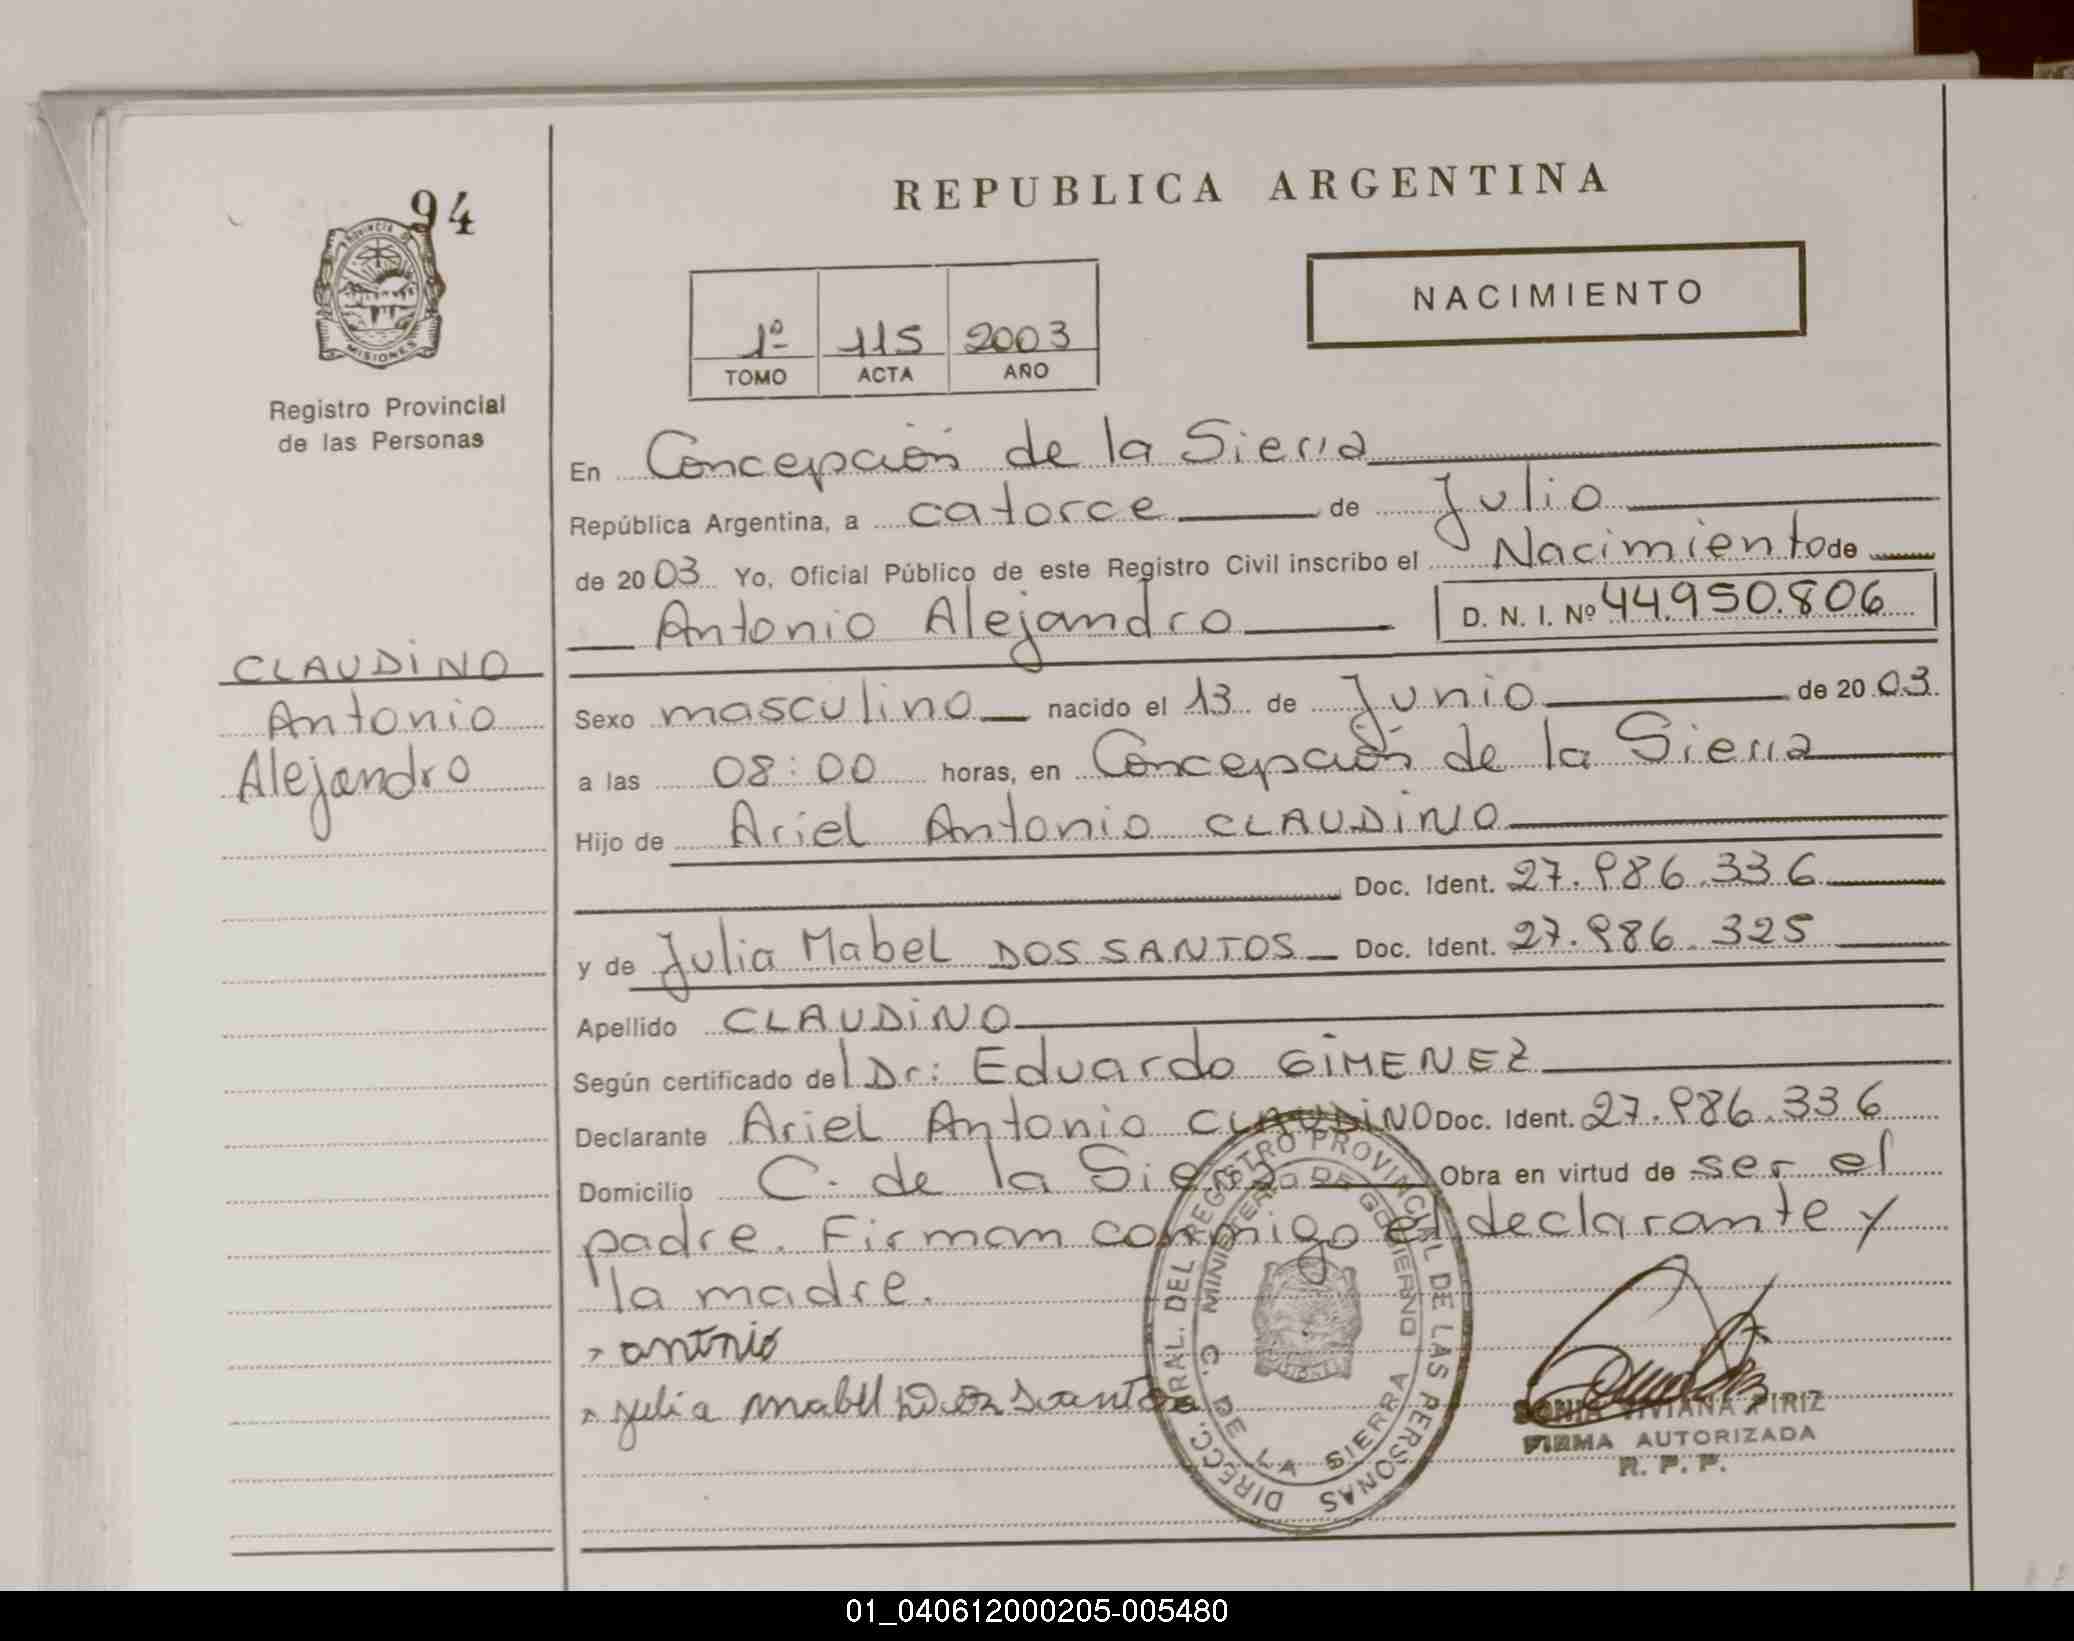 94
PROVINCIA DE
MISIONES
Registro Provincial
de las Personas
CLAUDINO
Antonio
Alejandro
REPUBLICA ARGENTINA
NACIMIENTO
1º 115 2003
TOMO ACTA AÑO
En Concepción de la Sierra
República Argentina, a catorce de Julio
de 2003 Yo, Oficial Público de este Registro Civil inscribo el Nacimiento de
Antonio Alejandro D. N. I. Nº 44.950.806
Sexo masculino nacido el 13 de Junio de 2003
a las 08:00 horas, en Concepción de la Sierra
Hijo de Ariel Antonio CLAUDINO
Doc. Ident. 27.986.336
y de Julia Mabel DOS SANTOS Doc. Ident. 27.986.325
Apellido CLAUDINO
Según certificado del Dr: Eduardo GIMENEZ
Declarante Ariel Antonio CLAUDINO Doc. Ident. 27.986.336
Domicilio C. de la Sierra Obra en virtud de ser el
padre. Firman conmigo el declarante y
la madre.
antnio
julia mabel Dos Santos
DIRECC. GRAL. DEL REGISTRO PROVINCIAL DE LAS PERSONAS
MINISTERIO DE GOBIERNO
C. DE LA SIERRA
SONIA VIVIANA PIRIZ
FIRMA AUTORIZADA
R. P. P.
01_040612000205-005480